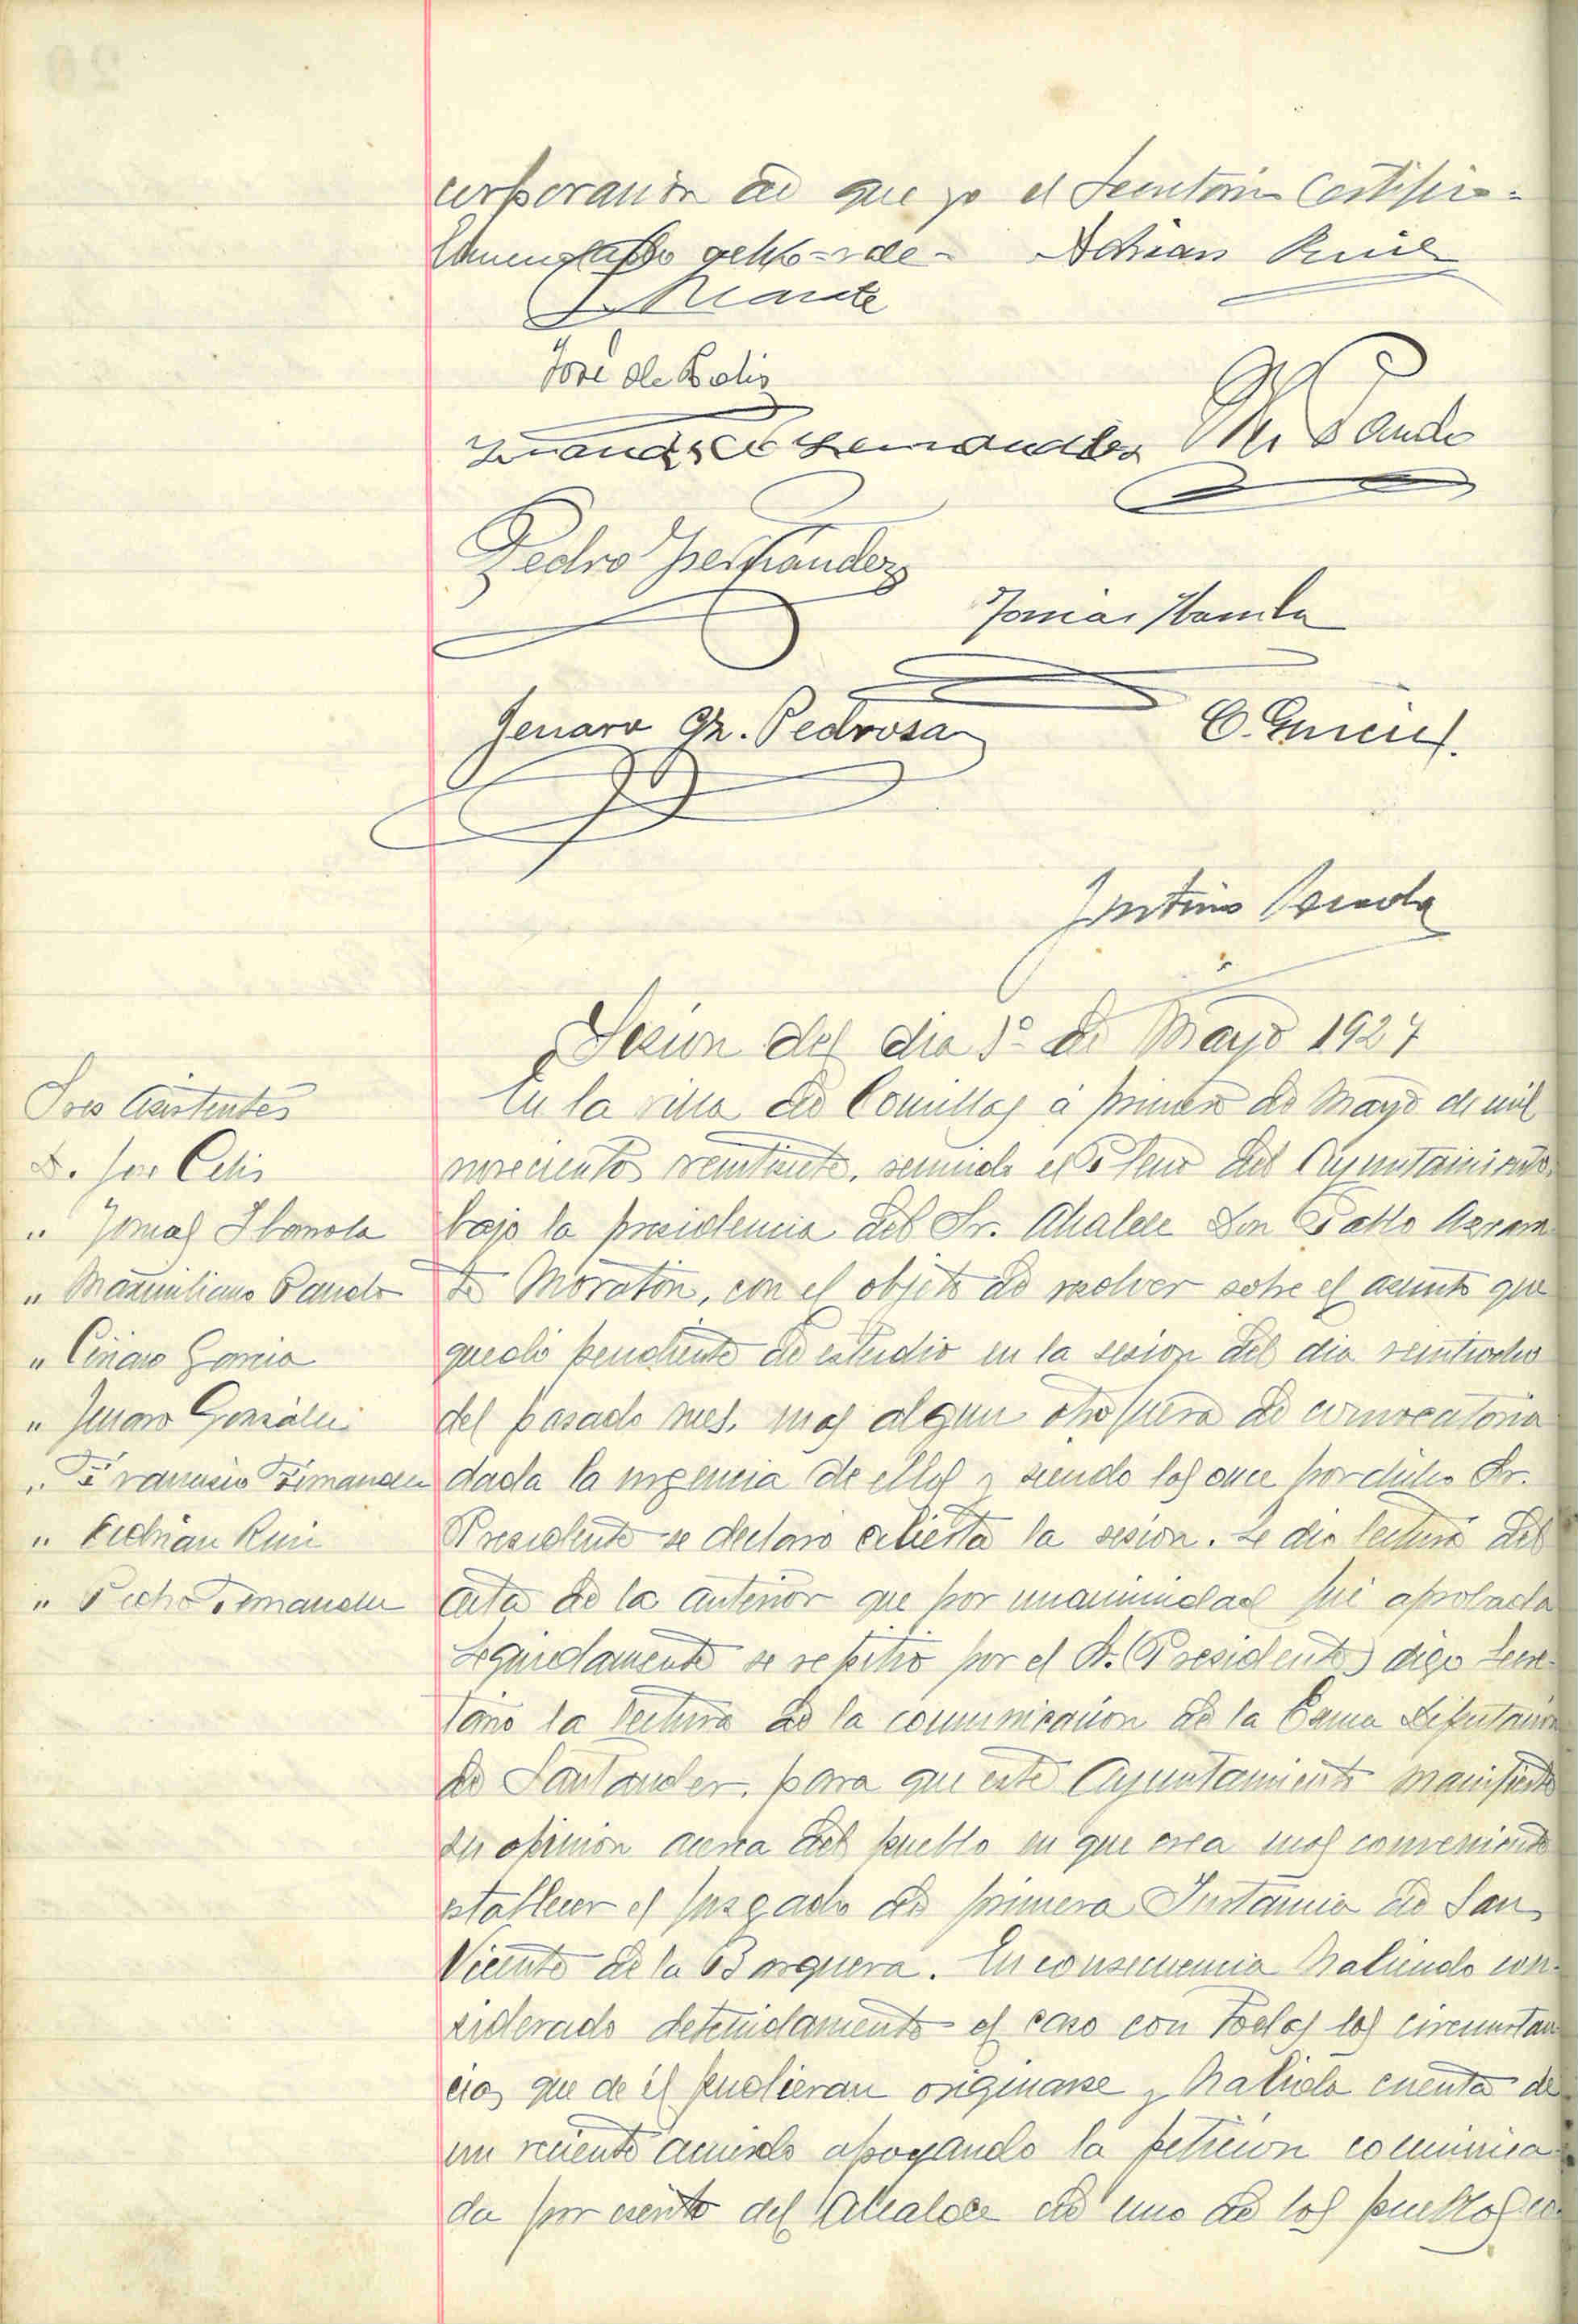 corporación de que yo el Secretario Certifico=
Enmendado
Adrian Ruiz
José de Celis
Francisco Fernandez
M. Pando
Pedro Fernández
Tomás Ibarrola
Jenaro Gz. Pedrosa
C. García
Justino
Sesion del dia 1º de Mayo 1927
Sres Asistentes
D. Jose Celis
" Tomas Ibarrola
" Maximiliano Pando
" Ciriaco Garcia
" Jenaro González
" Francisco Fernandez
" Adrián Ruiz
" Pedro Fernandez
En la villa de Comillas á primero de Mayo de mil
novecientos veintisiete, reunido el Pleno del Ayuntamiento
bajo la presidencia del Sr. Alcalde Don Pablo
Moratón, con el objeto de resolver sobre el asunto que
quedó pendiente de estudio en la sesion del dia veintiocho
del pasado mes, mas algun otro fuera de convocatoria
dada la urgencia de ellos y siendo las once por dicho Sr.
Presidente se declaró abierta la sesion. Se dio lectura del
acta de la anterior que por unanimidad fué aprobada
Seguidamente se repitió por el Sr. (Presidente) digo Secre-
tario la lectura de la comunicación de la Exma Diputación
de Santander, para que este Ayuntamiento manifieste
su opinión acerca del pueblo en que crea mas conveniente
establecer el Juzgado de primera Instancia de San
Vicente de la Barquera. En consecuencia habiendo con-
siderado detenidamente el caso con todas las circunstan
cias que de él pudieran originarse y habida cuenta de
un reciente acuerdo apoyando la petición comunica-
da por escrito del Alcalde de uno de los pueblos